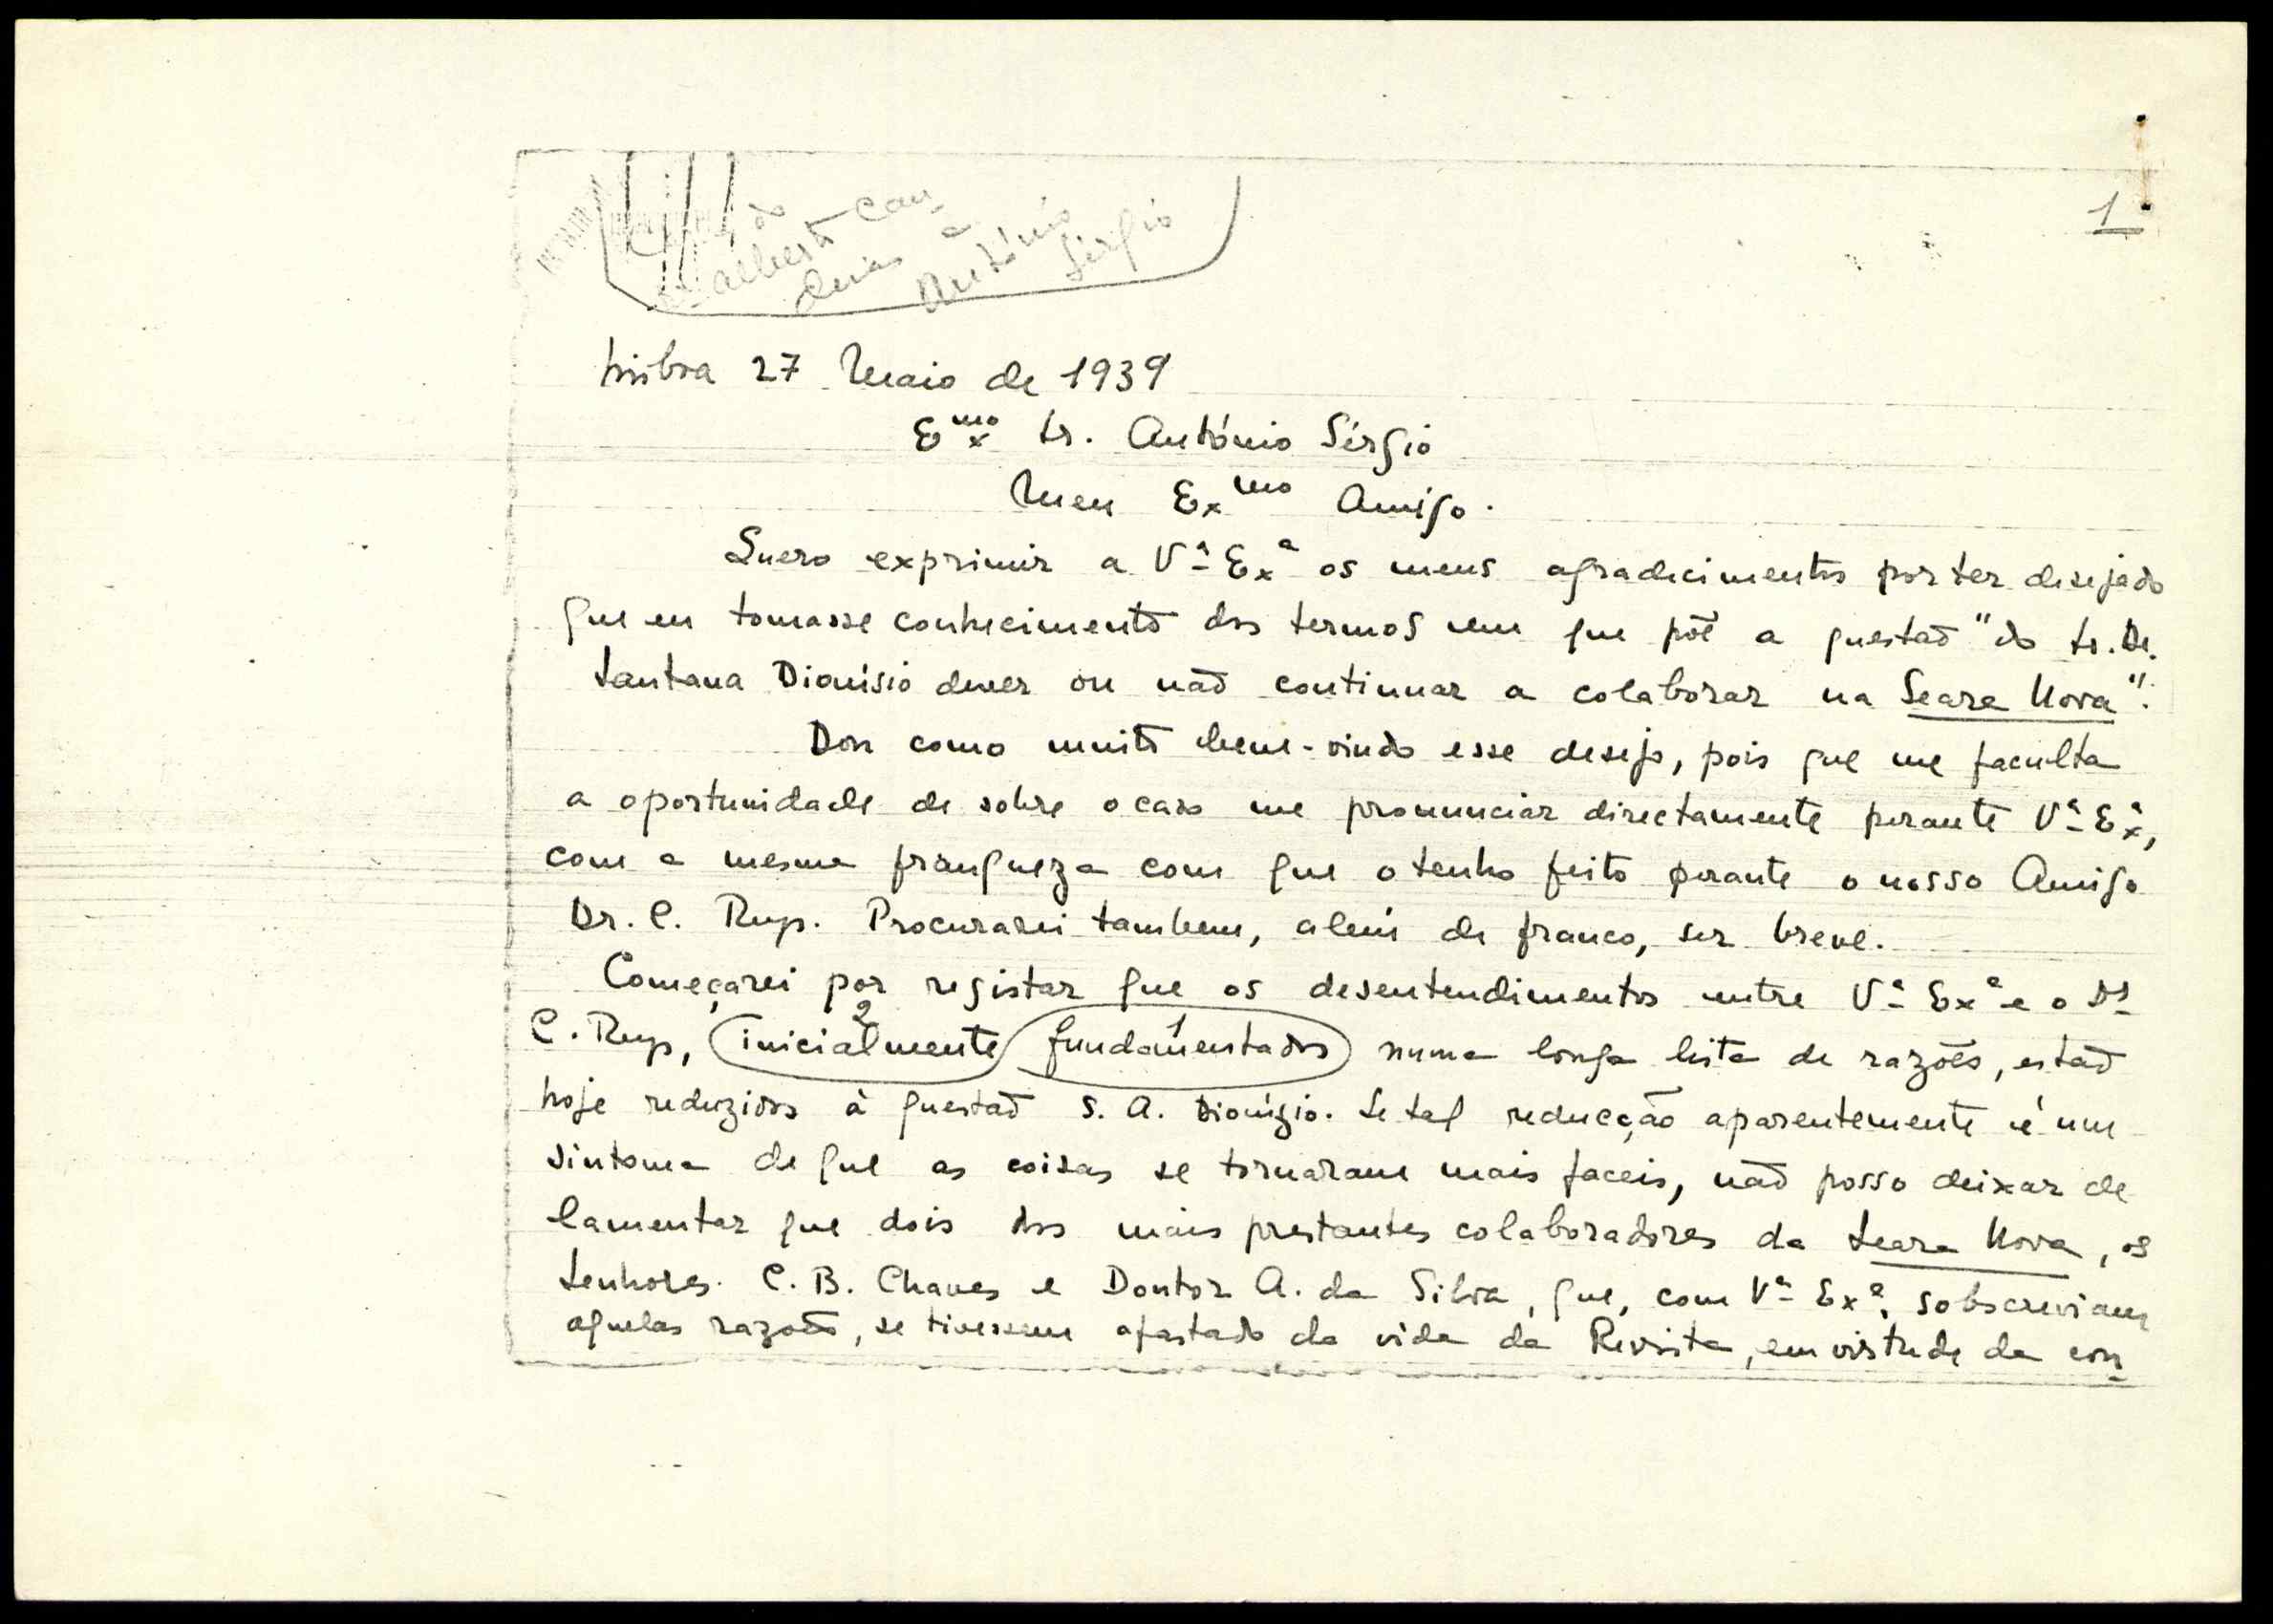 1
do
Alberto Can-
deias a
António
Sérgio
Lisboa 27 Maio de 1939
Exmo Sr. António Sérgio
Meu Exmo Amigo.
Quero exprimir a Vª Exª os meus agradecimentos por ter desejado
que eu tomasse conhecimento dos termos em que põe a questão "do Sr. Dr.
Santana Dionísio dever ou não continuar a colaborar na Seara Nova".
Dou como muito bem-vindo esse desejo, pois que me faculta
a oportunidade de sobre o caso me pronunciar directamente perante Vª Exª,
com a mesma franqueza com que o tenho feito perante o nosso Amigo
Dr. C. Rup. Procurarei tambem, além de franco, ser breve.
Começarei por registar que os desentendimentos entre Vª Exª e o Dr
C. Rup, inicialmente 2 fundamentados 1 numa longa lista de razões, estão
hoje reduzidos à questão S. A. Dionízio. Se tal reducção aparentemente é um
sintoma de que as coisas se tornaram mais faceis, não posso deixar de
lamentar que dois dos mais prestantes colaboradores da Seara Nova, os
Senhores C. B. Chaves e Doutor A. da Silva, que, com Vª Exª, sobscreviam
aquelas razões, se tivessem afastado da vida da Revista, em virtude da con-